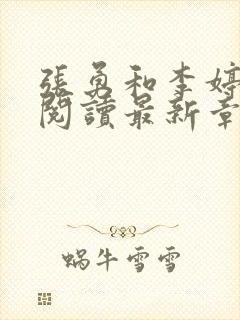 張勇和李婷
閱讀最新章
蝸牛雪雪